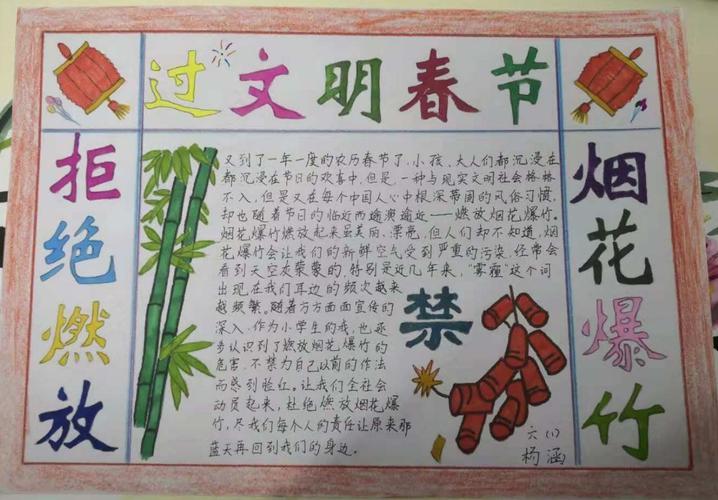 过文明春节
拒绝燃放
又到了一年一度的农历春节了,小孩、大人们都沉浸在
都沉浸在节日的欢喜中,但是,一种与现实文明社会格格
不入,但是又在每个中国人心中根深蒂固的风俗习惯,
却也随着节日的临近而逐渐逼近——燃放烟花爆竹。
烟花爆竹燃放起来虽美丽、漂亮,但人们却不知道,烟
花爆竹会让我们的新鲜空气受到严重的污染,经常会
看到天空灰蒙蒙的,特别是近几年来,“雾霾”这个词
出现在我们耳边的频次越来
越频繁。随着方方面面宣传的
深入,作为小学生的我,也逐
步认识到了燃放烟花爆竹的
危害,不禁为自己以前的作法
而感到脸红,让我们全社会
动员起来,杜绝燃放烟花爆
竹,尽我们每个人的责任让原来那
蓝天再回到我们的身边。
禁
六(1)
杨涵
烟花爆竹